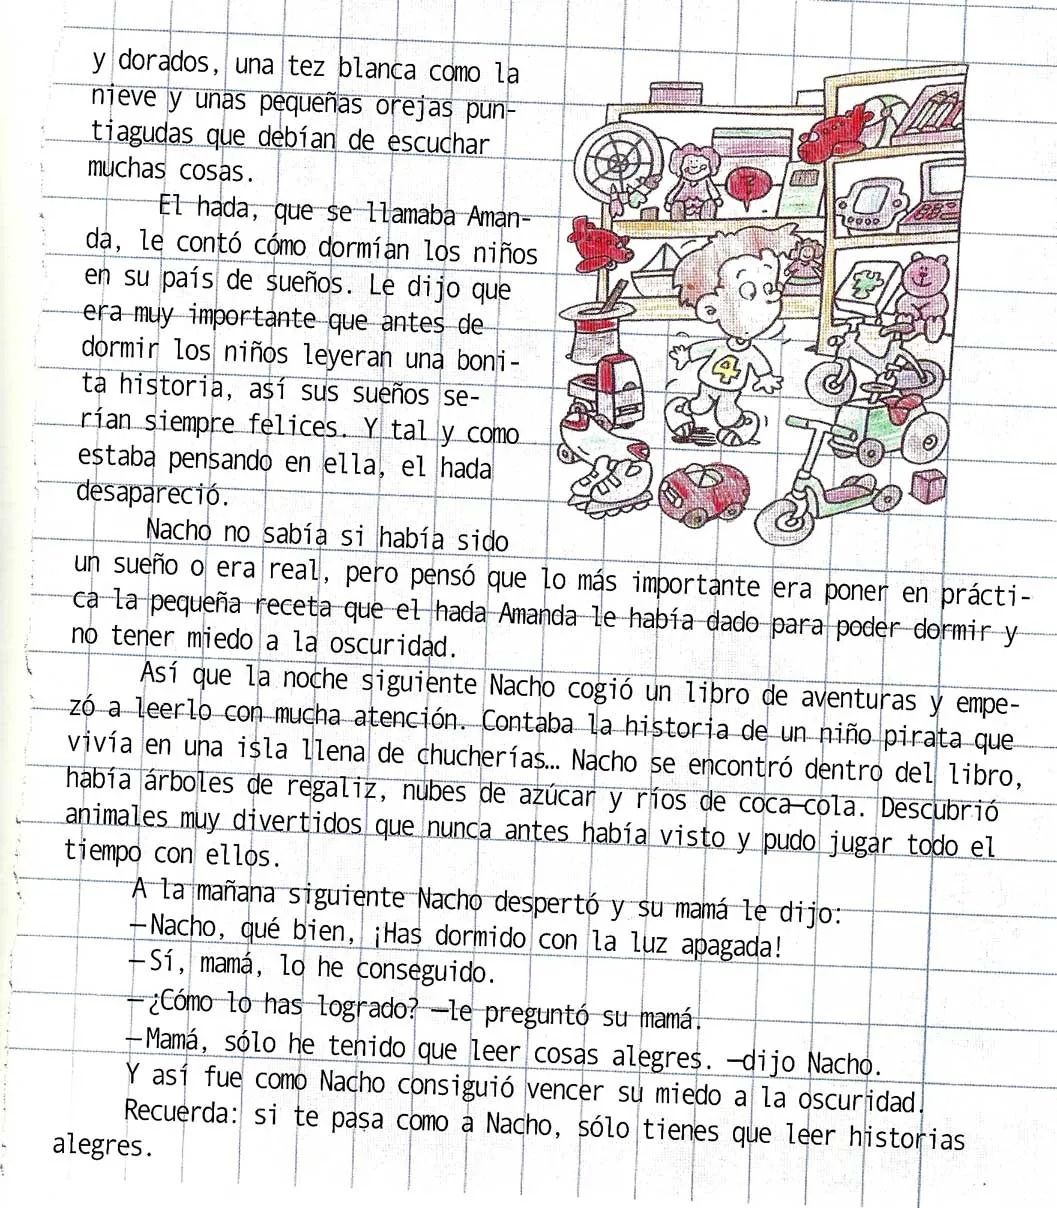 y dorados, una tez blanca como la
nieve y unas pequeñas orejas pun-
tiagudas que debían de escuchar
muchas cosas.
El hada, que se llamaba Aman-
da, le contó cómo dormían los niños
en su país de sueños. Le dijo que
era muy importante que antes de
dormir los niños leyeran una boni-
ta historia, así sus sueños se-
rían siempre felices. Y tal y como
estaba pensando en ella, el hada
desapareció.
4
Nacho no sabía si había sido
un sueño o era real, pero pensó que lo más importante era poner en prácti-
ca la pequeña receta que el hada Amanda le había dado para poder dormir y
no tener miedo a la oscuridad.
Así que la noche siguiente Nacho cogió un libro de aventuras y empe-
zó a leerlo con mucha atención. Contaba la historia de un niño pirata que
vivía en una isla llena de chucherías... Nacho se encontró dentro del libro,
había árboles de regaliz, nubes de azúcar y ríos de coca-cola. Descubrió
animales muy divertidos que nunca antes había visto y pudo jugar todo el
tiempo con ellos.
A la mañana siguiente Nacho despertó y su mamá le dijo:
—Nacho, qué bien, ¡Has dormido con la luz apagada!
—Sí, mamá, lo he conseguido.
—¿Cómo lo has logrado? —le preguntó su mamá.
—Mamá, sólo he tenido que leer cosas alegres. —dijo Nacho.
Y así fue como Nacho consiguió vencer su miedo a la oscuridad.
Recuerda: si te pasa como a Nacho, sólo tienes que leer historias
alegres.